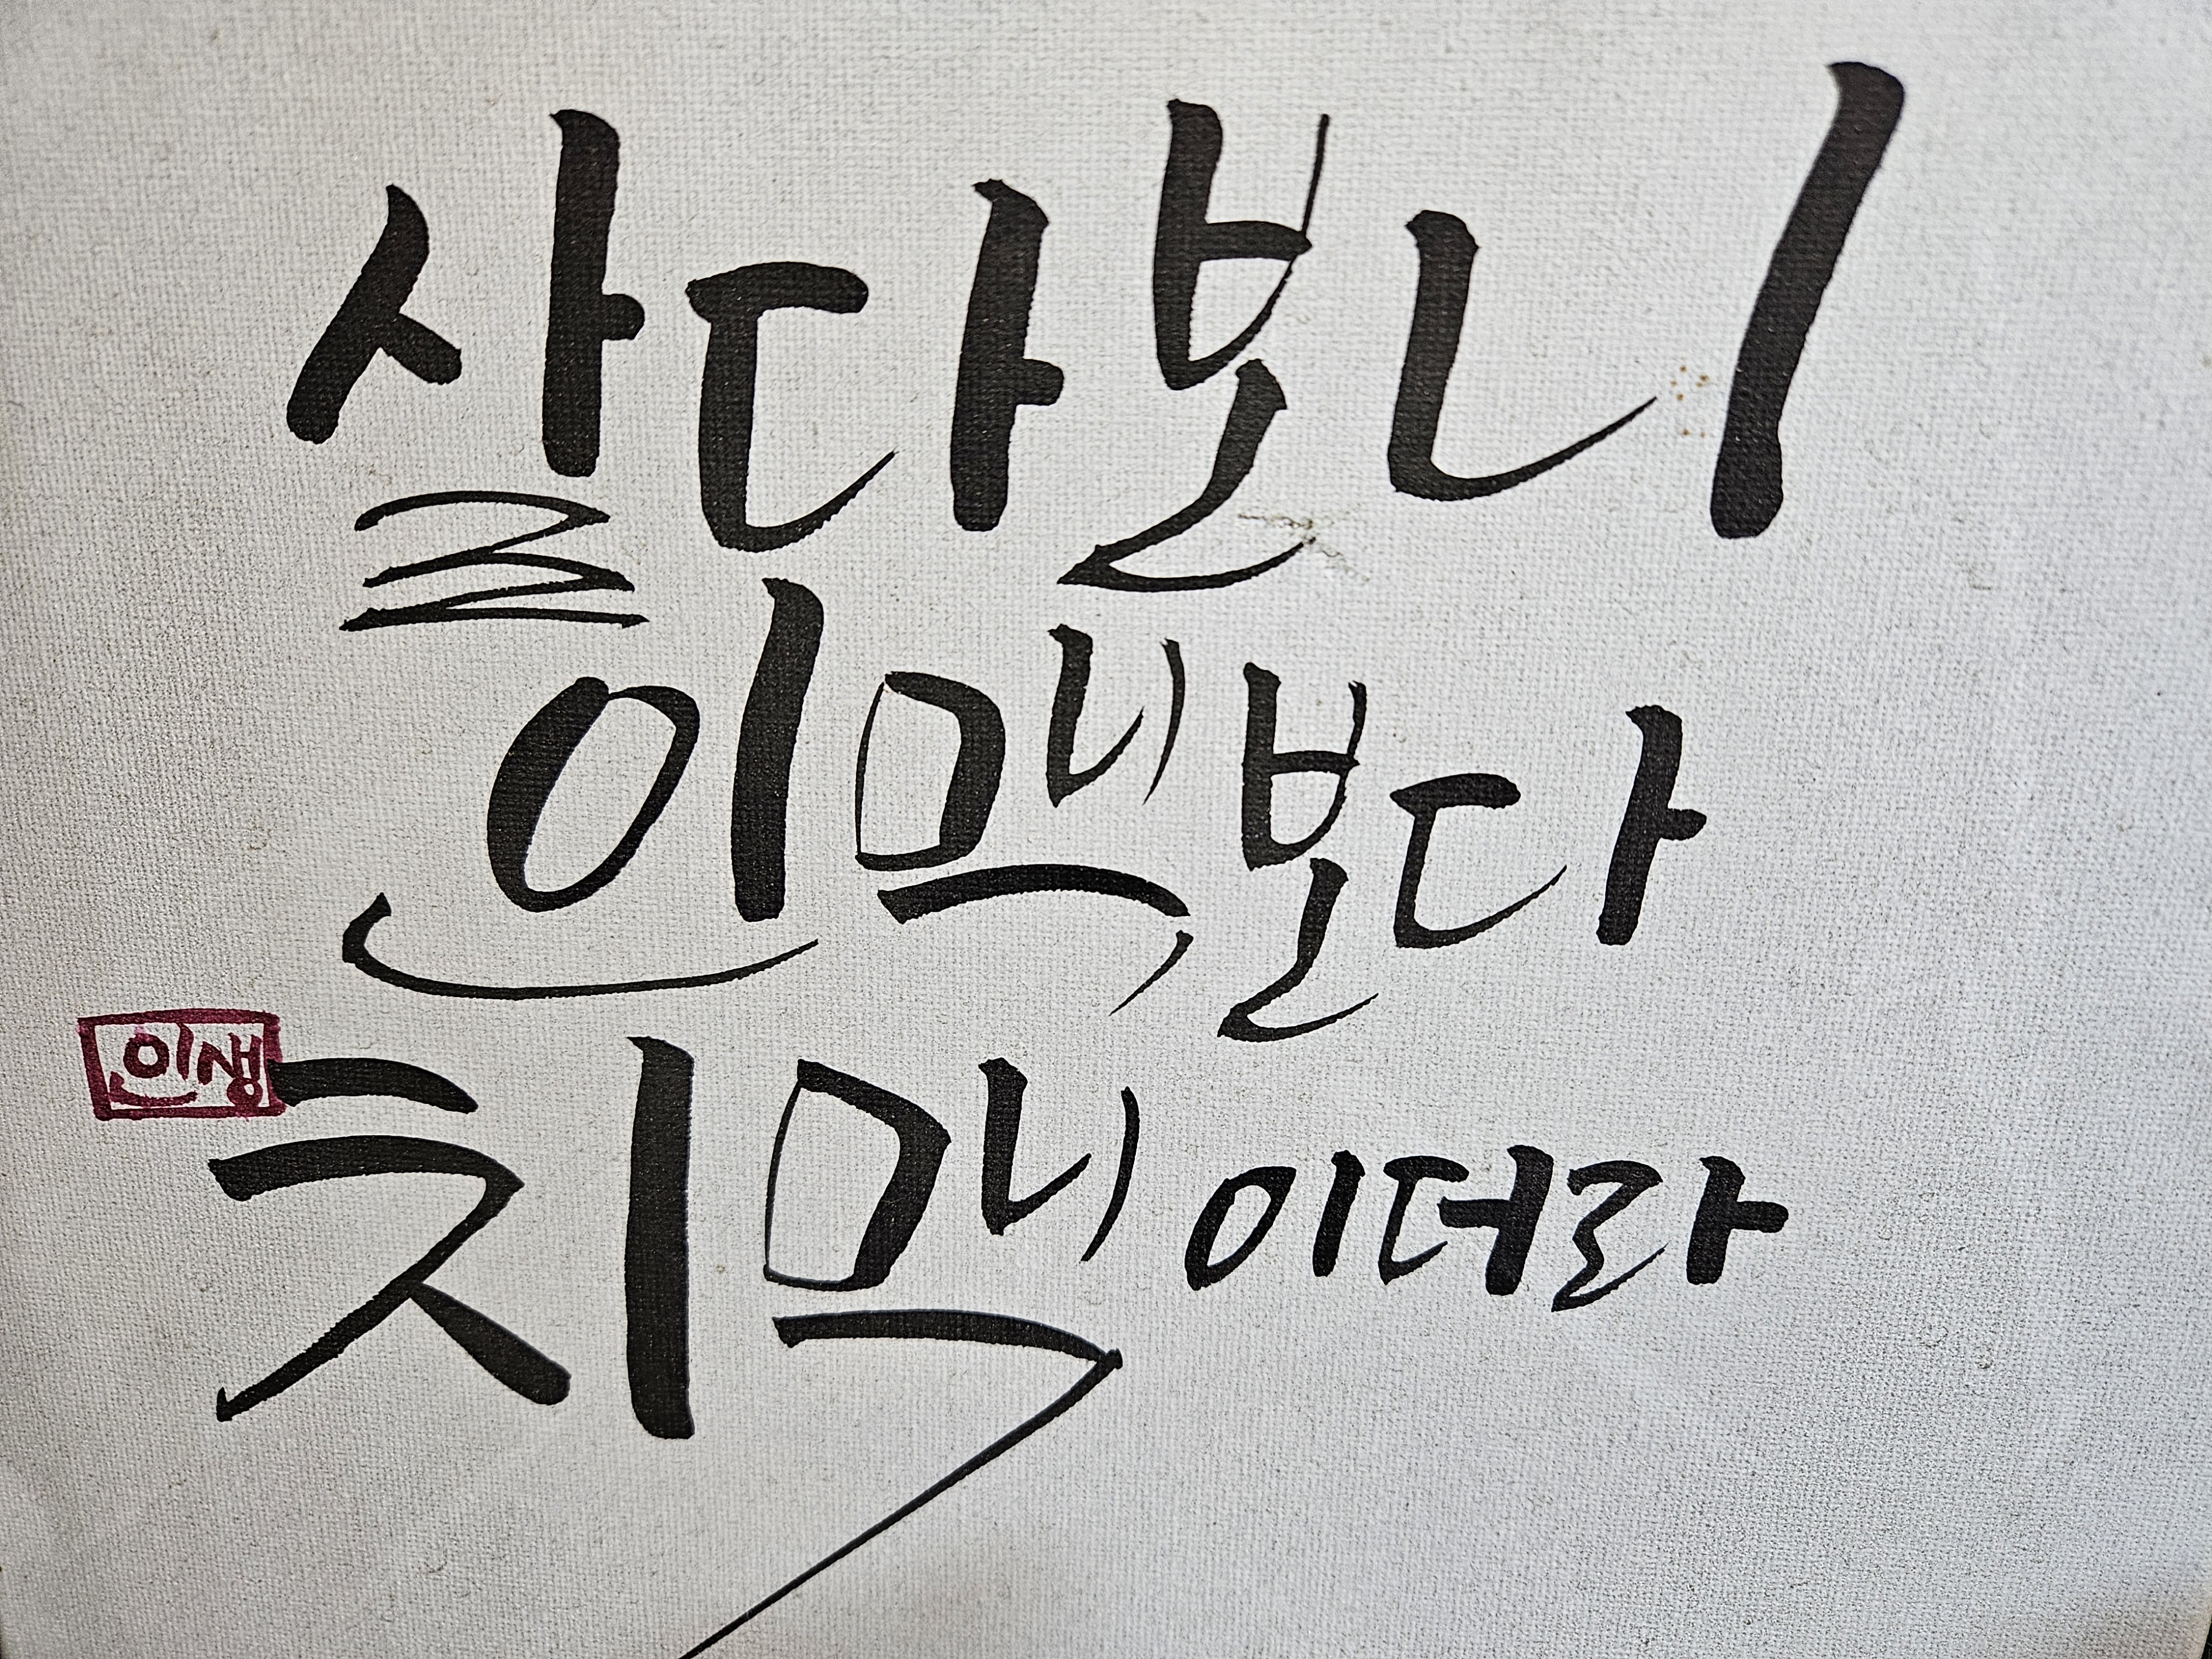 살다보니
인맥보다
인생
치맥이더라